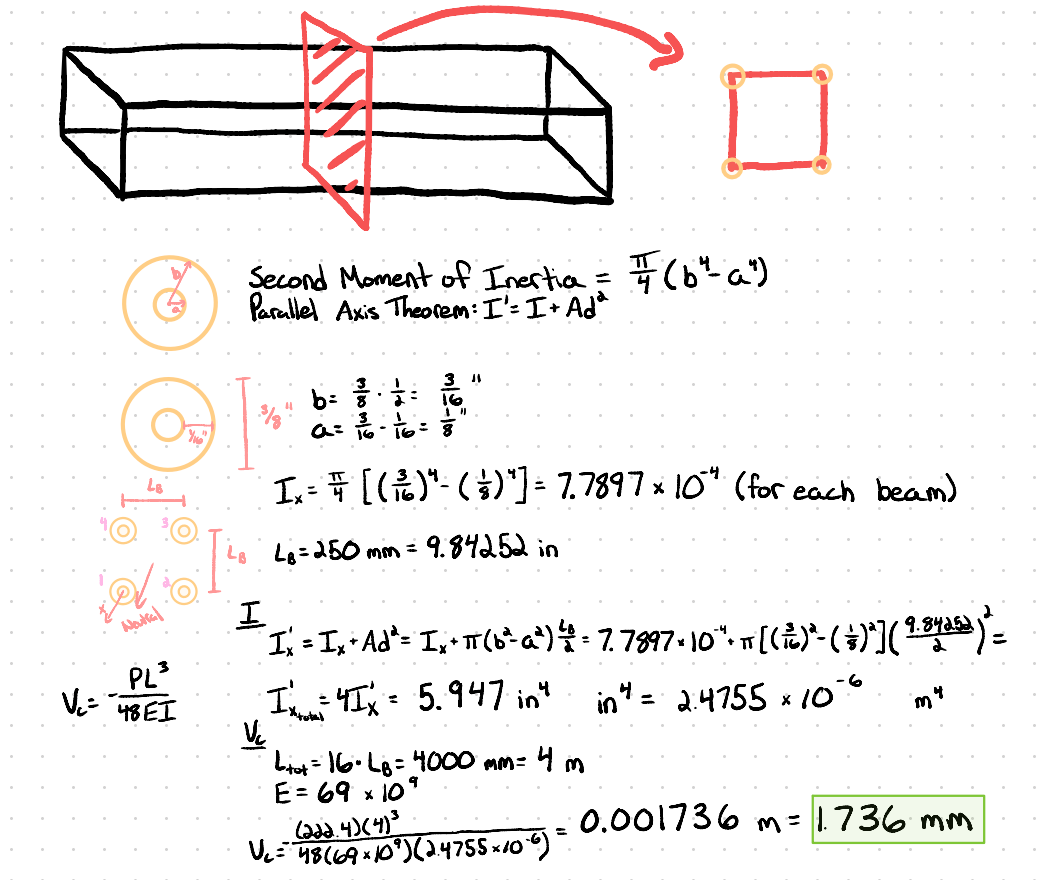 b
a
Second Moment of Inertia = π/4 (b⁴ - a⁴)
Parallel Axis Theorem: I' = I + Ad²
3/8"
1/16"
b = 3/8 · 1/2 = 3/16 "
a = 3/16 - 1/16 = 1/8"
I_x = π/4 [(3/16)⁴ - (1/8)⁴] = 7.7897 × 10⁻⁴ (for each beam)
L_B
4 3
L_B
1 2
x
Neutral
L_B = 250 mm = 9.84252 in
I
I'_x = I_x + Ad² = I_x + π(b² - a²) L_B/2 = 7.7897 × 10⁻⁴ + π[(3/16)² - (1/8)²](9.84252/2)² =
I'_x_total = 4I'_x = 5.947 in⁴ in⁴ = 2.4755 × 10⁻⁶ m⁴
V_c = -PL³/48EI
V_c
L_tot = 16 · L_B = 4000 mm = 4 m
E = 69 × 10⁹
V_c = -(222.4)(4)³/48(69 × 10⁹)(2.4755 × 10⁻⁶) = 0.001736 m = 1.736 mm